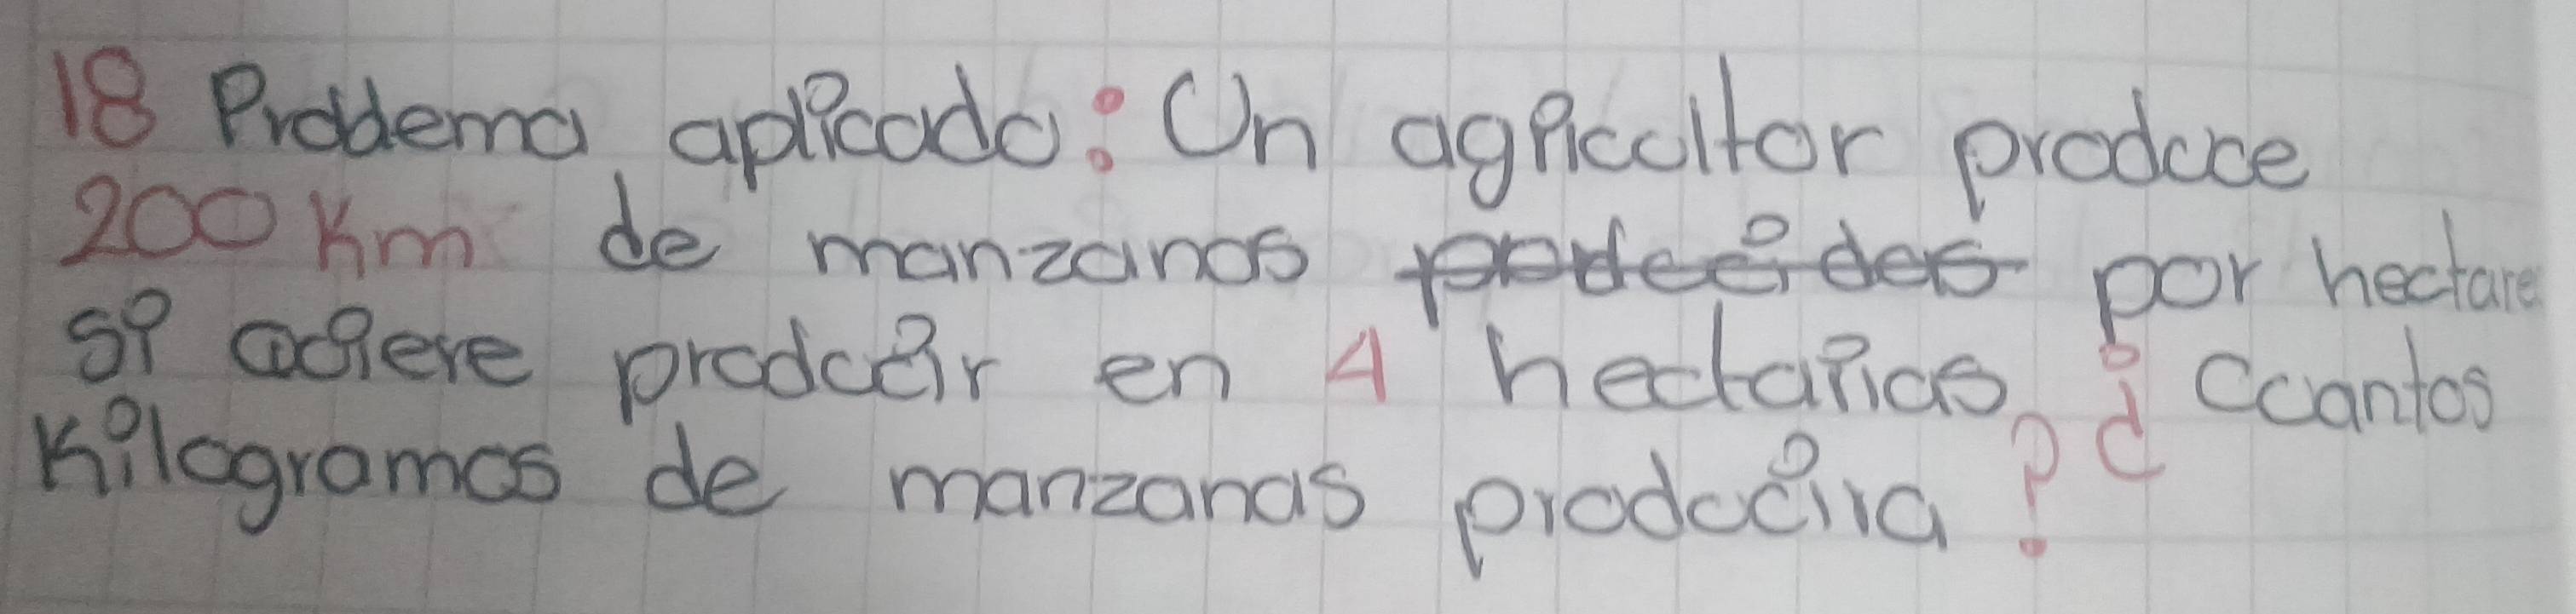 18 Problema aplicado: Un agricultor produce
200 Km de manzanas por hectare
si quiere producir en 4 hectarias ¿ cuantos
Kilogramos de manzanas producira?